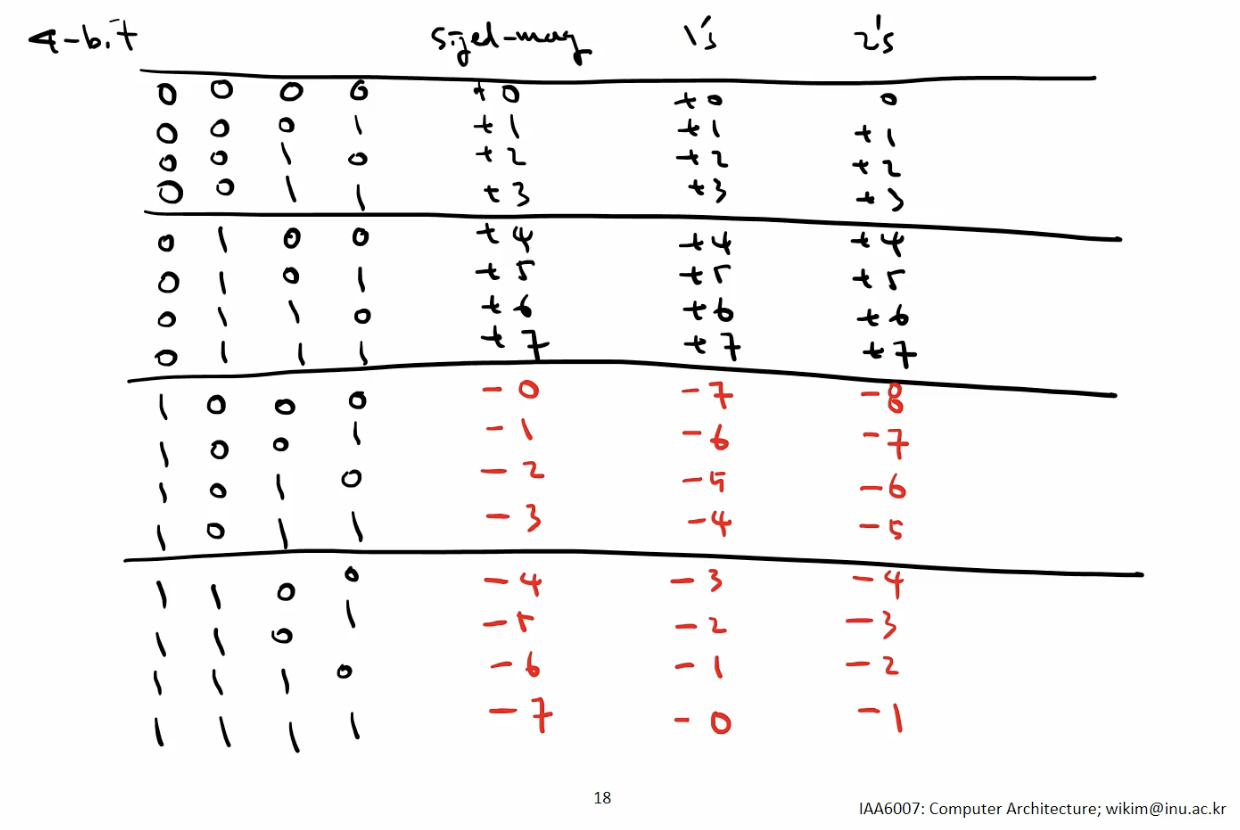 4-bit siged-mag 1's 2's
0 0 0 0 +0 +0 0
0 0 0 1 +1 +1 +1
0 0 1 0 +2 +2 +2
0 0 1 1 +3 +3 +3
0 1 0 0 +4 +4 +4
0 1 0 1 +5 +5 +5
0 1 1 0 +6 +6 +6
0 1 1 1 +7 +7 +7
1 0 0 0 -0 -7 -8
1 0 0 1 -1 -6 -7
1 0 1 0 -2 -5 -6
1 0 1 1 -3 -4 -5
1 1 0 0 -4 -3 -4
1 1 0 1 -5 -2 -3
1 1 1 0 -6 -1 -2
1 1 1 1 -7 -0 -1
18
IAA6007: Computer Architecture; wikim@inu.ac.kr